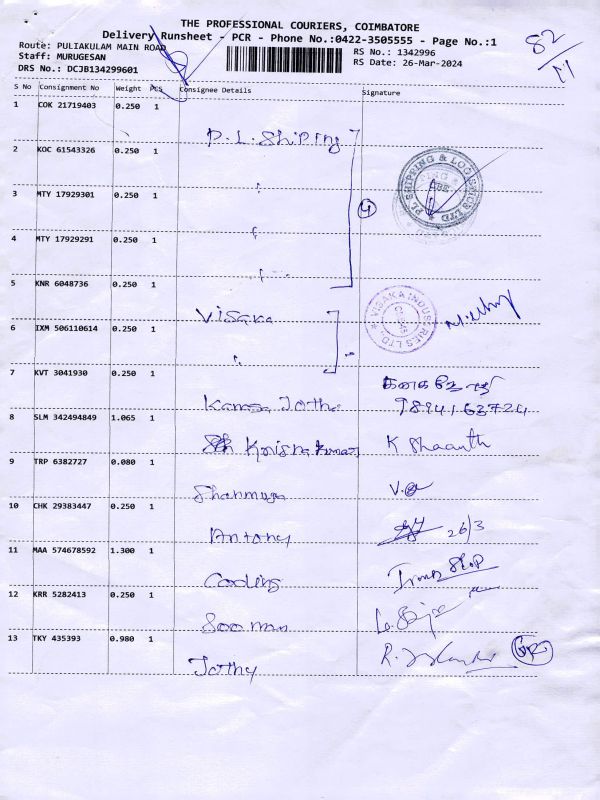 THE PROFESSIONAL COURIERS, COIMBATORE
Delivery Runsheet - PCR - Phone No.:0422-3505555 - Page No.:1
Route: PULIAKULAM MAIN ROAD
RS No.: 1342996
82
Staff: MURUGESAN
RS Date: 26-Mar-2024
DRS No.: DCJB134299601
S No Consignment No Weight PCS Consignee Details Signature
1 COK 21719403 0.250 1
P.L. Shiping
2 KOC 61543326 0.250 1
PL SHIPPING & LOGISTICS LTD
3 MTY 17929301 0.250 1
4
4 MTY 17929291 0.250 1
5 KNR 6048736 0.250 1
Visaka
VISAKA INDUSTRIES LTD.
6 IXM 506110614 0.250 1
7 KVT 3041930 0.250 1
9894163724
8 SLM 342494849 1.065 1
Krishna Kumar K Shaanth
9 TRP 6382727 0.080 1
Shanmuga
10 CHK 29383447 0.250 1
Antony 26/3
11 MAA 574678592 1.300 1
Cooling
12 KRR 5282413 0.250 1
13 TKY 435393 0.980 1
Jothy